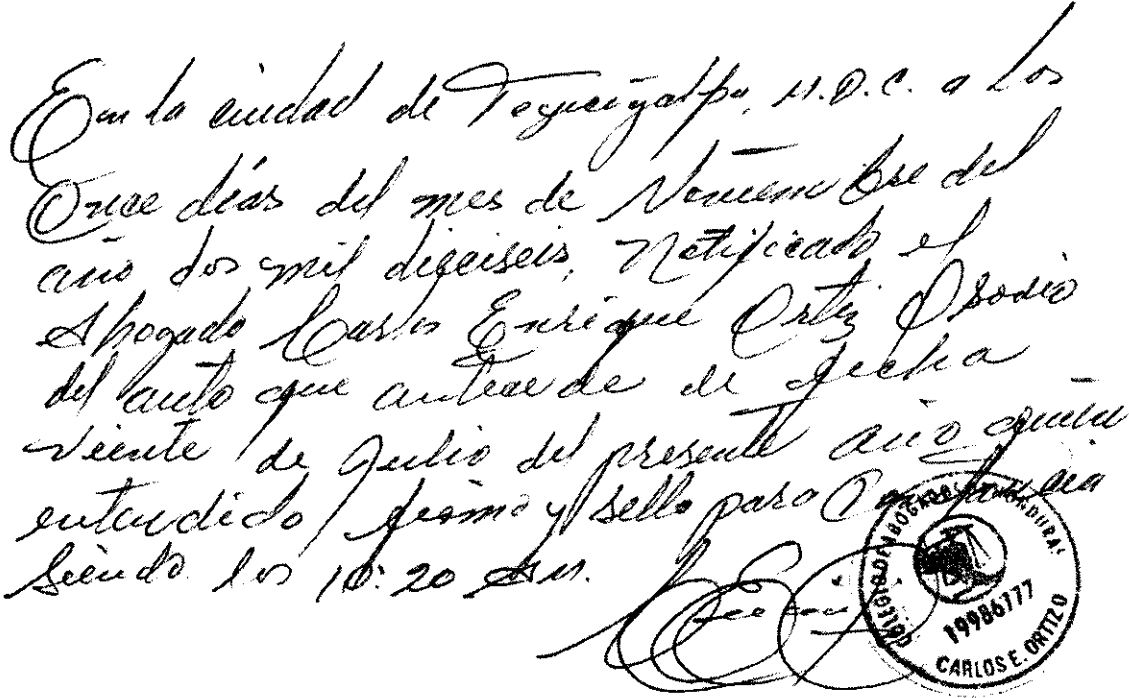 En la ciudad de Tegucigalpa, M.D.C. a los
Once días del mes de Noviembre del
año dos mil dieciseis, Notificado el
Abogado Carlos Enrique Ortiz Osorio
del auto que antecede de fecha
Veinte de Julio del presente año quien
entendido firmo y sello para Constancia
Siendo las 10:20 Am.
COLEGIO DE ABOGADOS HONDURAS
19986777
CARLOS E. ORTIZ O